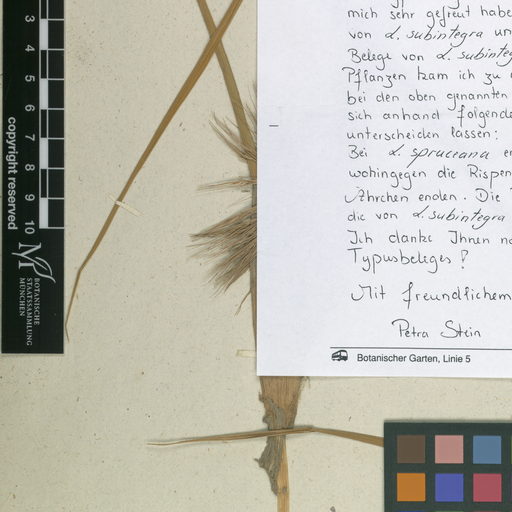 3
4
5
6
7
8
9
10
copyright reserved
BOTANISCHE
STAATSSAMMLUNG
MÜNCHEN
mich sehr gefreut habe
von L. subintegra un
Belege von L. subinteg
Pflanzen kam ich zu
bei den oben genannten
sich anhand folgende
unterscheiden lassen:
Bei L. spruceana er
wohingegen die Rispen
Ährchen enden. Die
die von L. subintegra
Ich danke Ihnen no
Typusbeleges!
Mit freundlichem
Petra Stein
Botanischer Garten, Linie 5